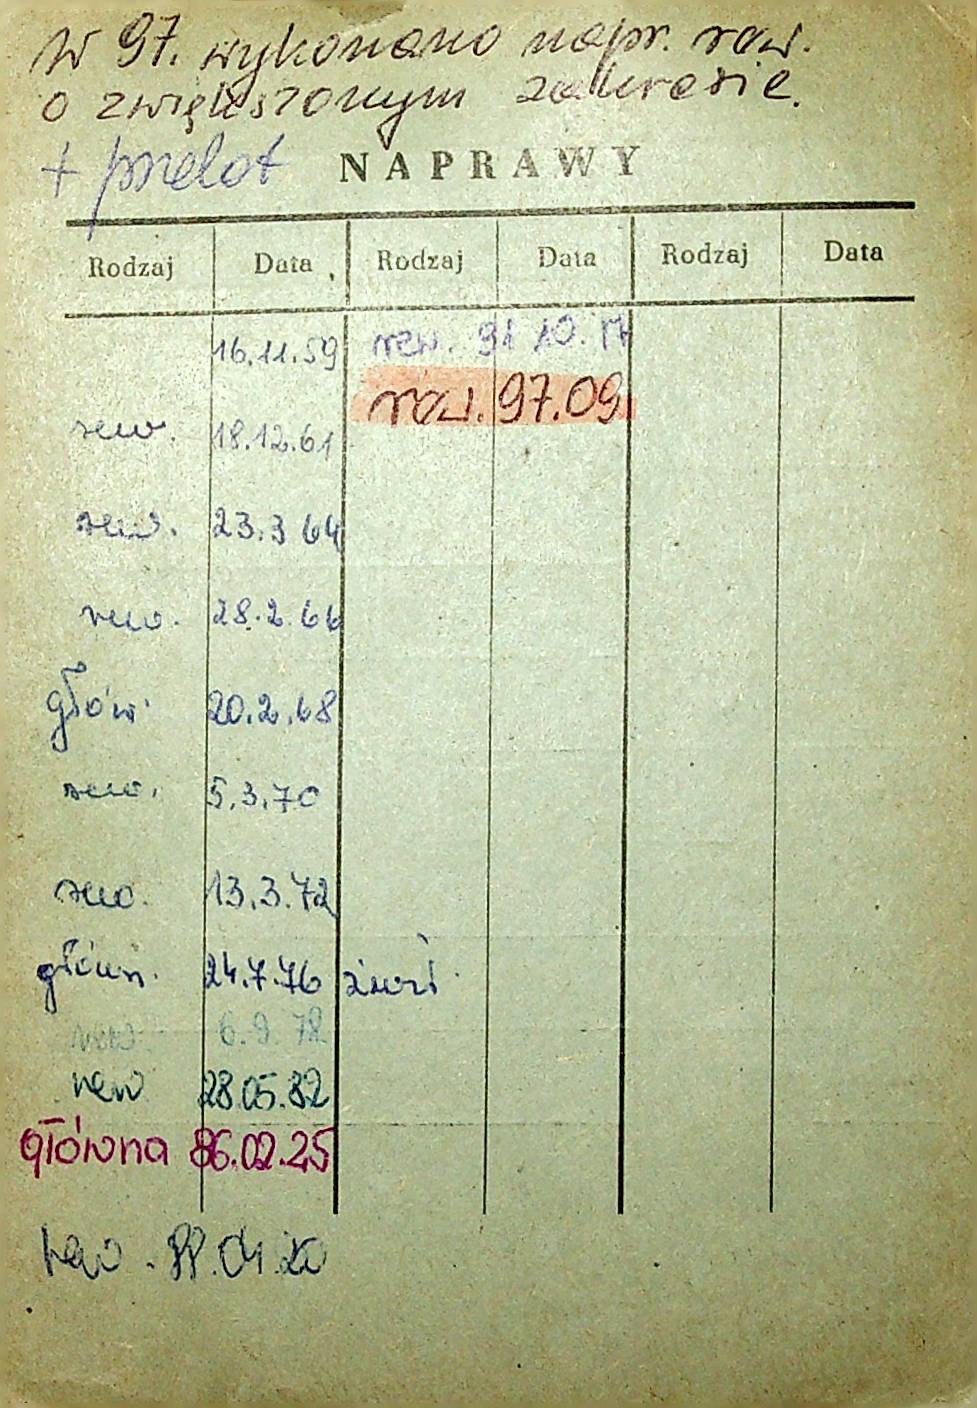 W 97. wykonano napr. rew.
o zwiększonym zakresie.
+ przelot
NAPRAWY
Rodzaj Data Rodzaj Data Rodzaj Data
16.11.59 rew. 91 10. 17
rew. 97.09
rew. 18.12.61
rew. 23.3 64
rew. 28.2.66
główn. 20.2.68
rew. 5.3.70
rew. 13.3.72
główn. 24.7.76
rew. 6.9.78
rew 28.05.82
główna 86.02.25
rew. 88.04.20